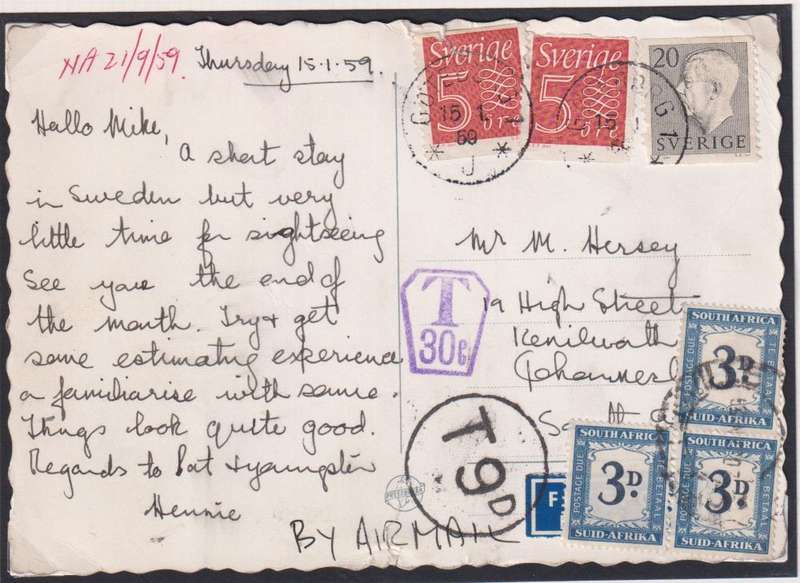 NA 21/9/59.
Thursday 15.1.59.
Hallo Mike,
A short stay
in Sweden but very
little time for sightseeing
See you the end of
the month. Try & get
some estimating experience
or familiarise with same.
Things look quite good.
Regards to Pat & youngster
Hennie
BY AIRMAIL
Sverige
5
öre
Sverige
5
öre
20
SVERIGE
15 1
59
J
15
G 1
Mr M. Hersey
19 High Street
Kenilworth
T
30c
T 9D
SOUTH AFRICA
POSTAGE DUE
3D.
TE BETAAL
SUID-AFRIKA
SOUTH AFRICA
POSTAGE DUE
3D.
TE BETAAL
SUID-AFRIKA
SOUTH AFRICA
POSTAGE DUE
3D.
TE BETAAL
SUID-AFRIKA